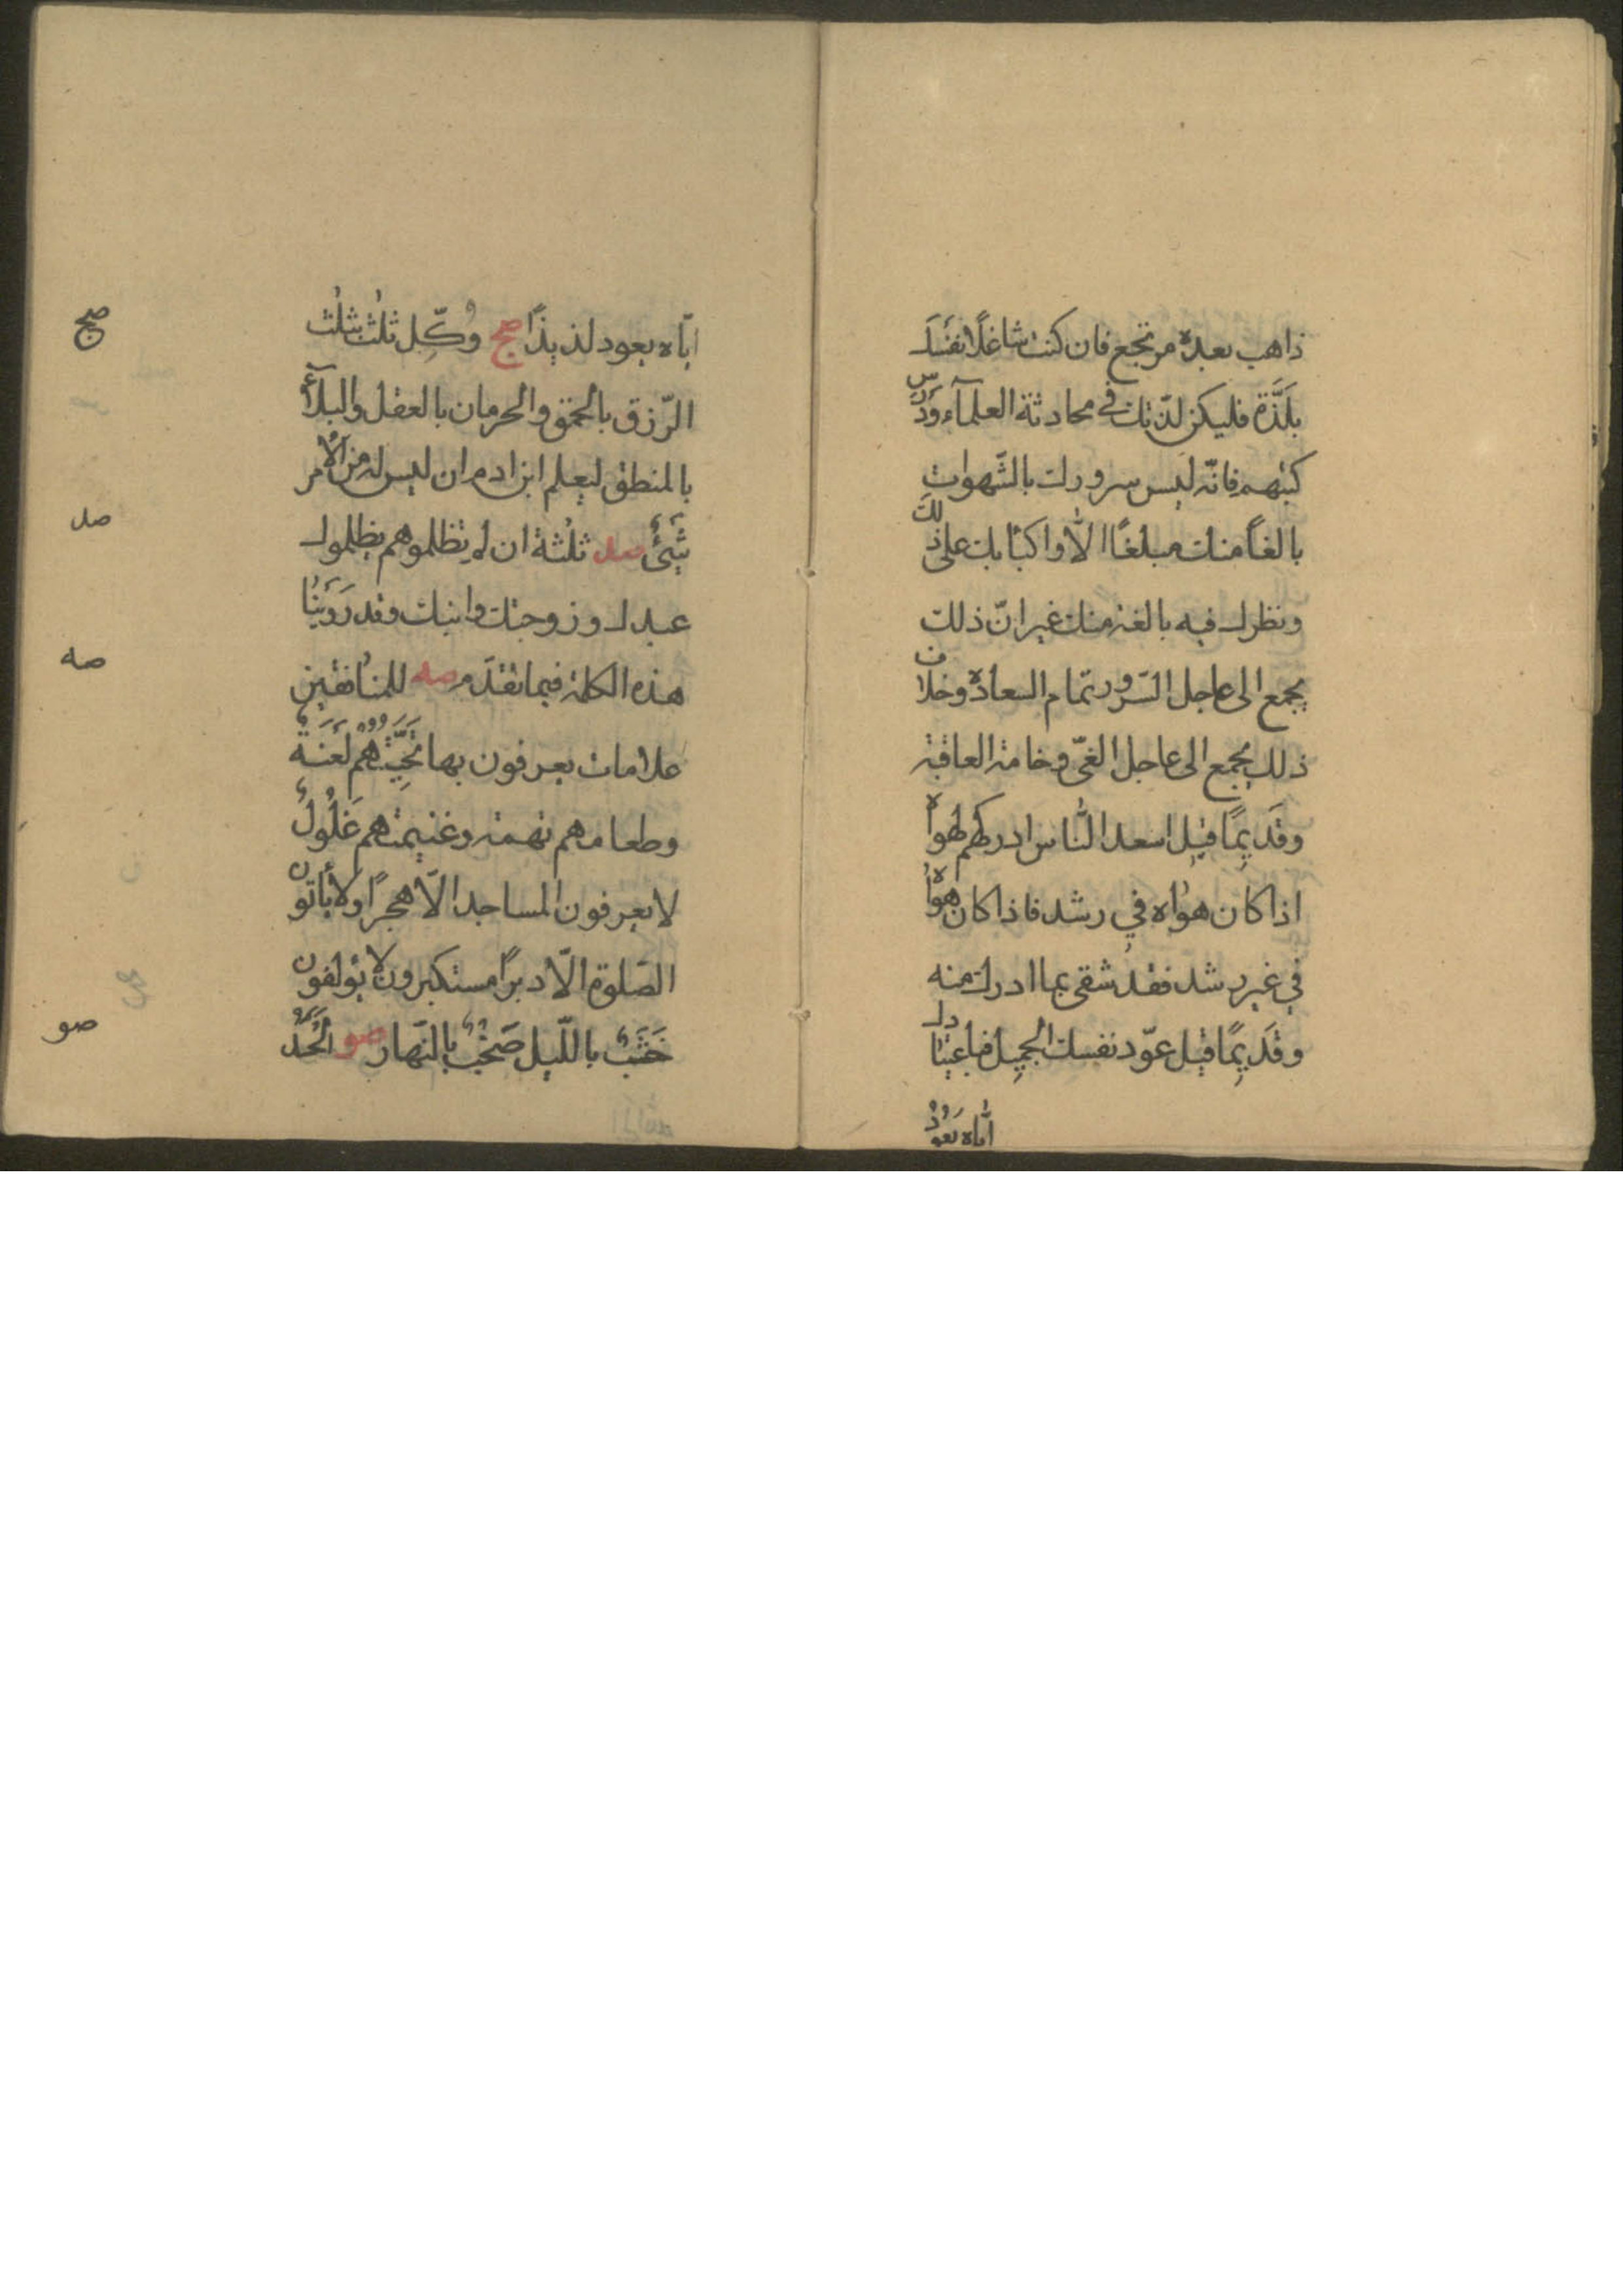 ذاهب بعده مرتجع فان كنت شاغلًا نفسَك
بلَذَّة فليكن لذّتك في محادثة العلمآء ودَرس
كتبهم فانّه ليس سرورك بالشّهوات
بالغاً منك مبلغًا الّا واكبابك على ذلك
ونظرك فيه بالغه منك غير انّ ذلك
يجمع الى عاجل السّرور تمام السعادة وخلاف
ذلك يجمع الى عاجل الغىّ وخامة العاقبة
وقَديِمًا قيِل اسعد النّاس ادركهم لهواه
اذا كان هواه في رشد فاذا كان هواه
في غير رشد فقد شقى بما ادرك منه
وقَديِمًا قيِل عوّد نفسك الجميِل فباعتيادك
ايّاه يَعُودُ
ايّاه يعود لذيذًا صج وُكِّل ثلث بثلث
الرّزق بالحمق والحرمان بالعقل والبلآءُ
بالمنطق ليعلم ابن ادم ان ليس له من الأمر
شَىْءٌ صد ثلثة ان لم تظلموهم يظلموك
عبدك وزوجتك وابنك وقد رَوَينا
هذه الكلمة فيما تقدّم صه للمنافقين
علامات يعرفون بها تَحِيَّتُهُمْ لَعْنَةٌ
وطعامهم تهمة وغنيمتهم غَلُولٌ
لا يعرفون المساجد الّا هجرًا ولا يأتون
الصّلوة الّا دبرًا مستكبرون لا يؤلفون
خَشَبٌ بالليل صَخَبٌ بالنّهار صو الحَسَد
صج
صد
صه
صو